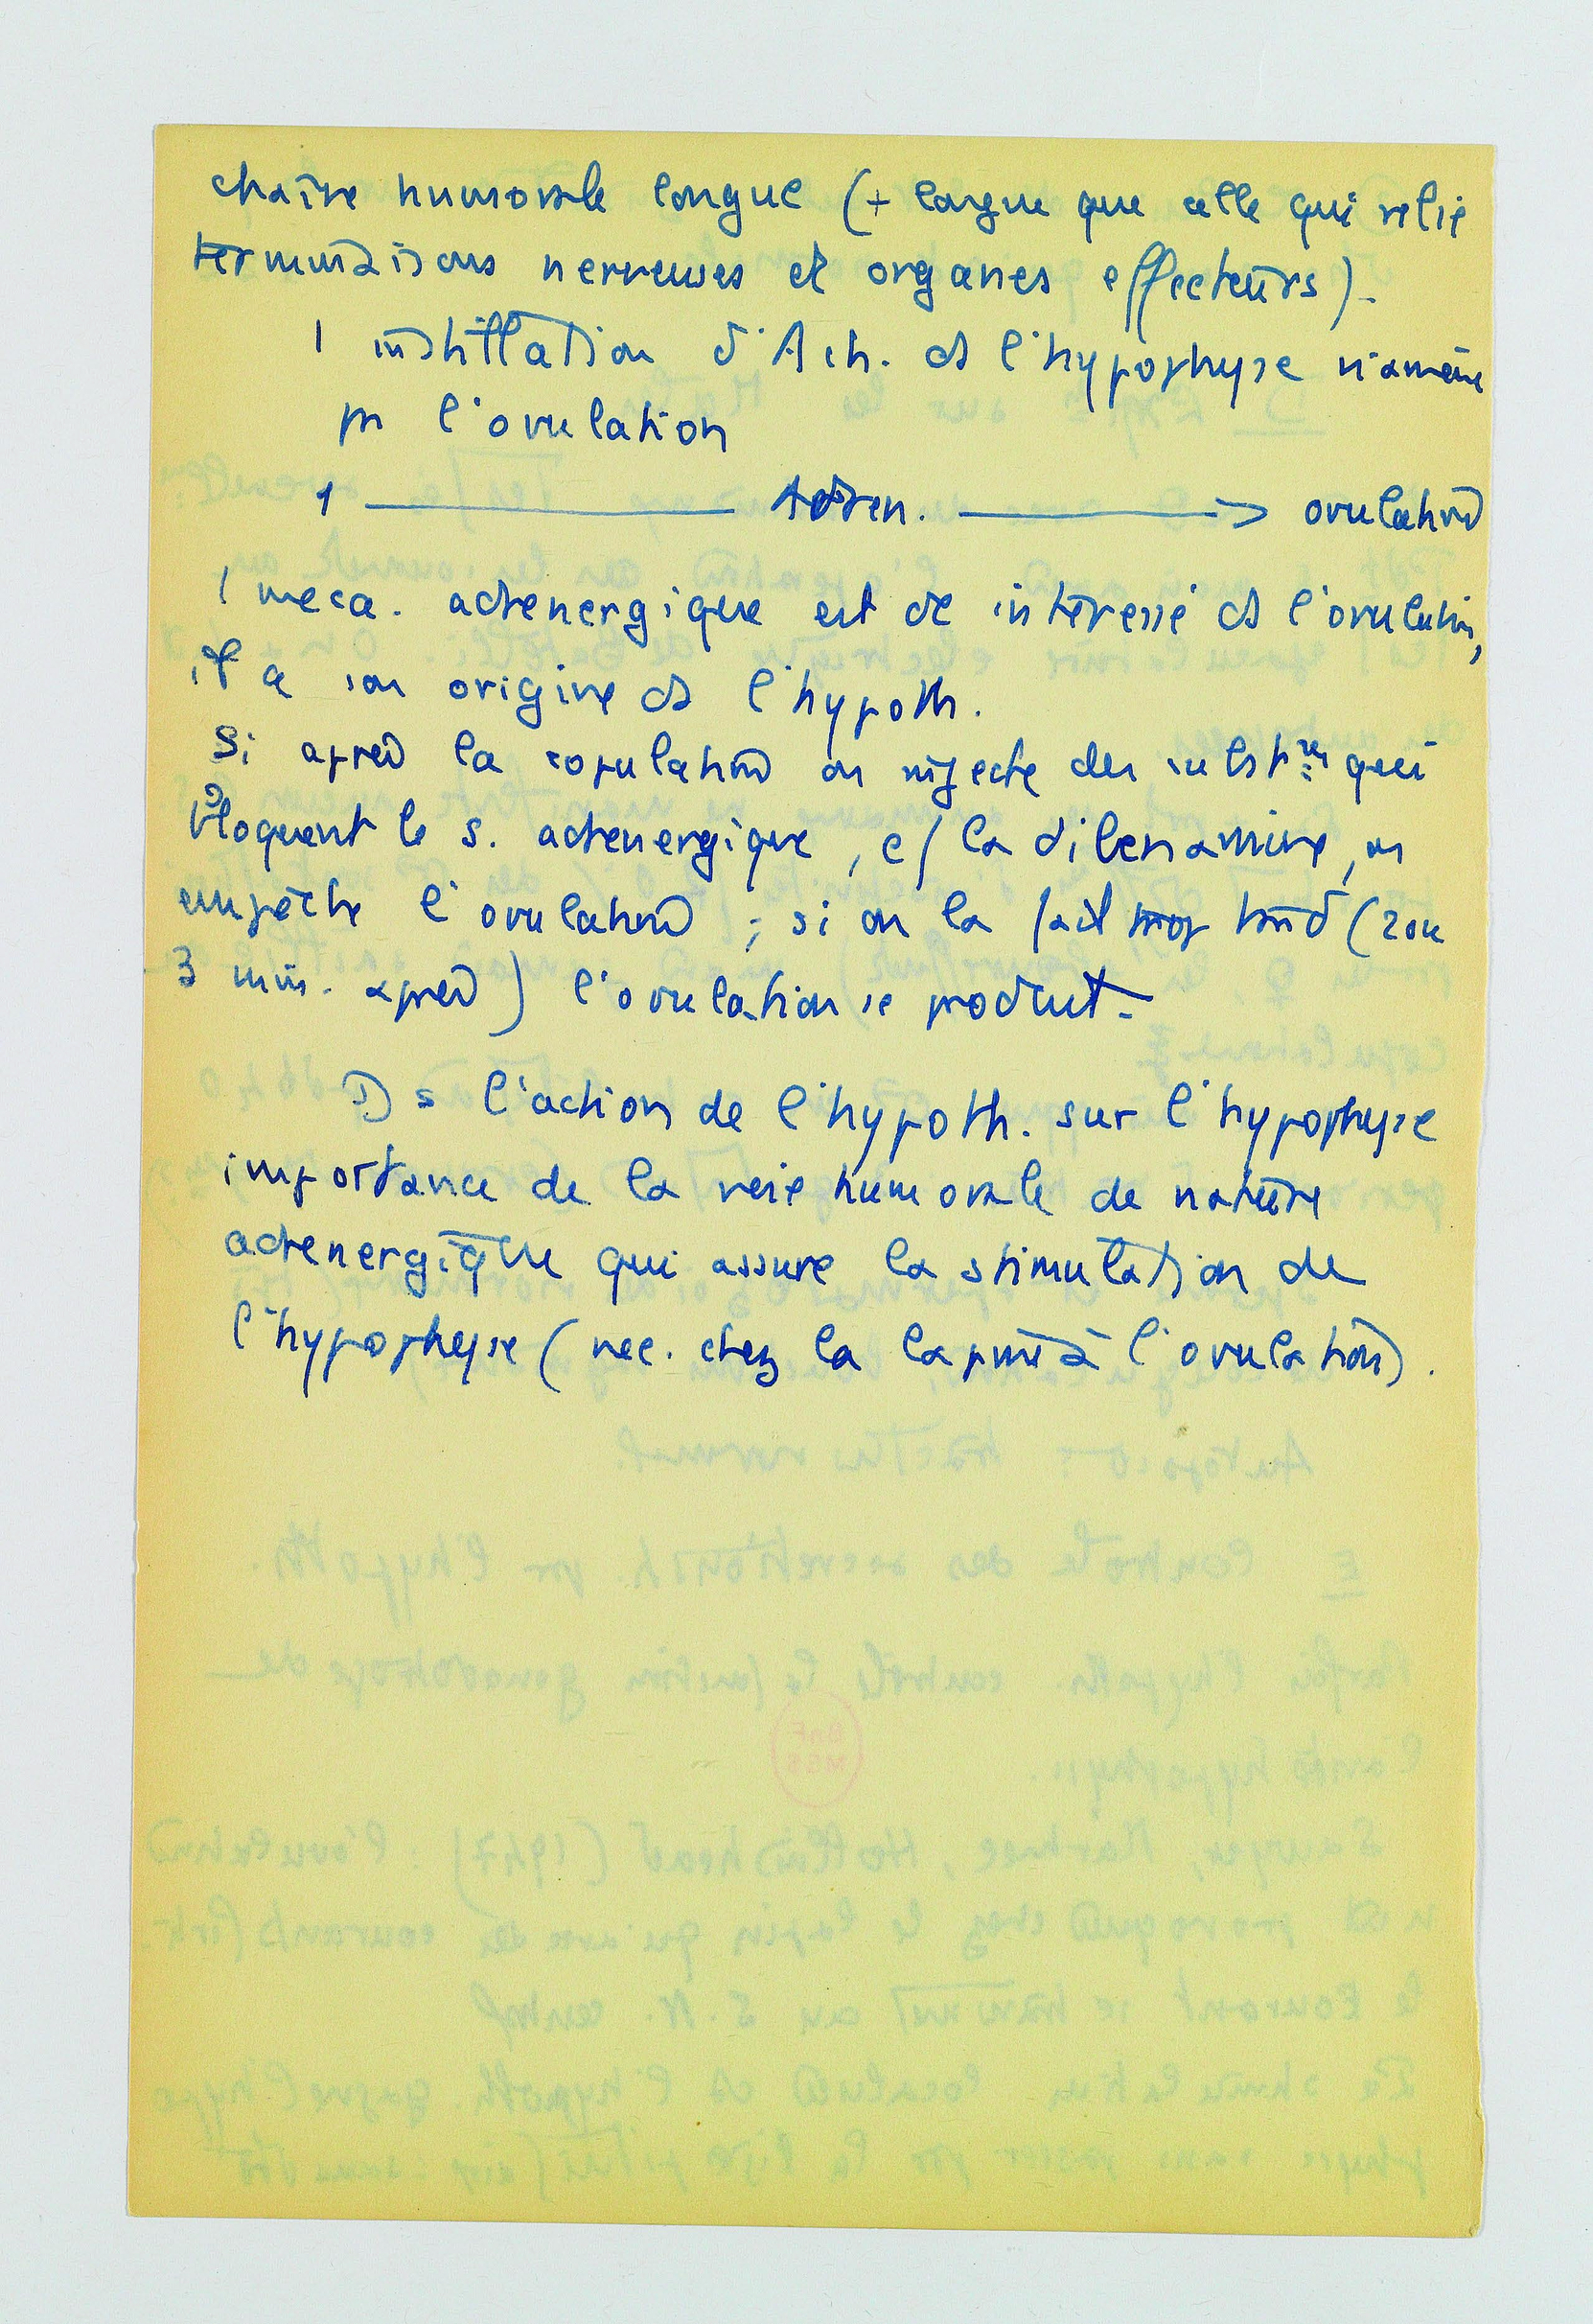 chaîne humorale longue (+ longue que celle qui relie
terminaisons nerveuses et organes effecteurs).
1 instillation d'Ach. ds l'hypophyse n'amène
pas l'ovulation
1 ——— Adren. ———> ovulation
1 meca. adrenergique est dc intéressé ds l'ovulation,
il a son origine ds l'hypoth.
Si après la copulation on injecte des substces qui
bloquent le s. adrenergique, c/ la dibenamine, on
empêche l'ovulation ; si on la fait trop tard (2 ou
3 min. après) l'ovulation se produit -
Ds l'action de l'hypoth. sur l'hypophyse
importance de la voie humorale de nature
adrenergique qui assure la stimulation de
l'hypophyse (nec. chez la lapine à l'ovulation).